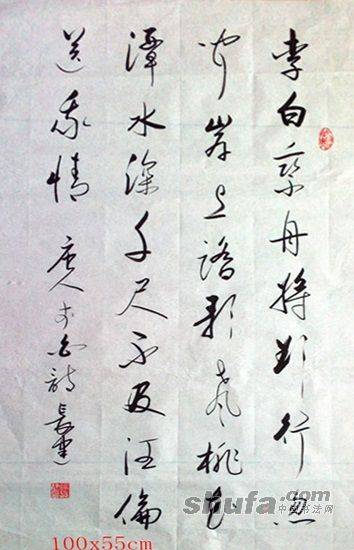 李白乘舟将欲行忽
闻岸上踏歌声桃花
潭水深千尺不及汪倫
送我情 唐人李白詩
shufa.com
中国书法网
100x55cm